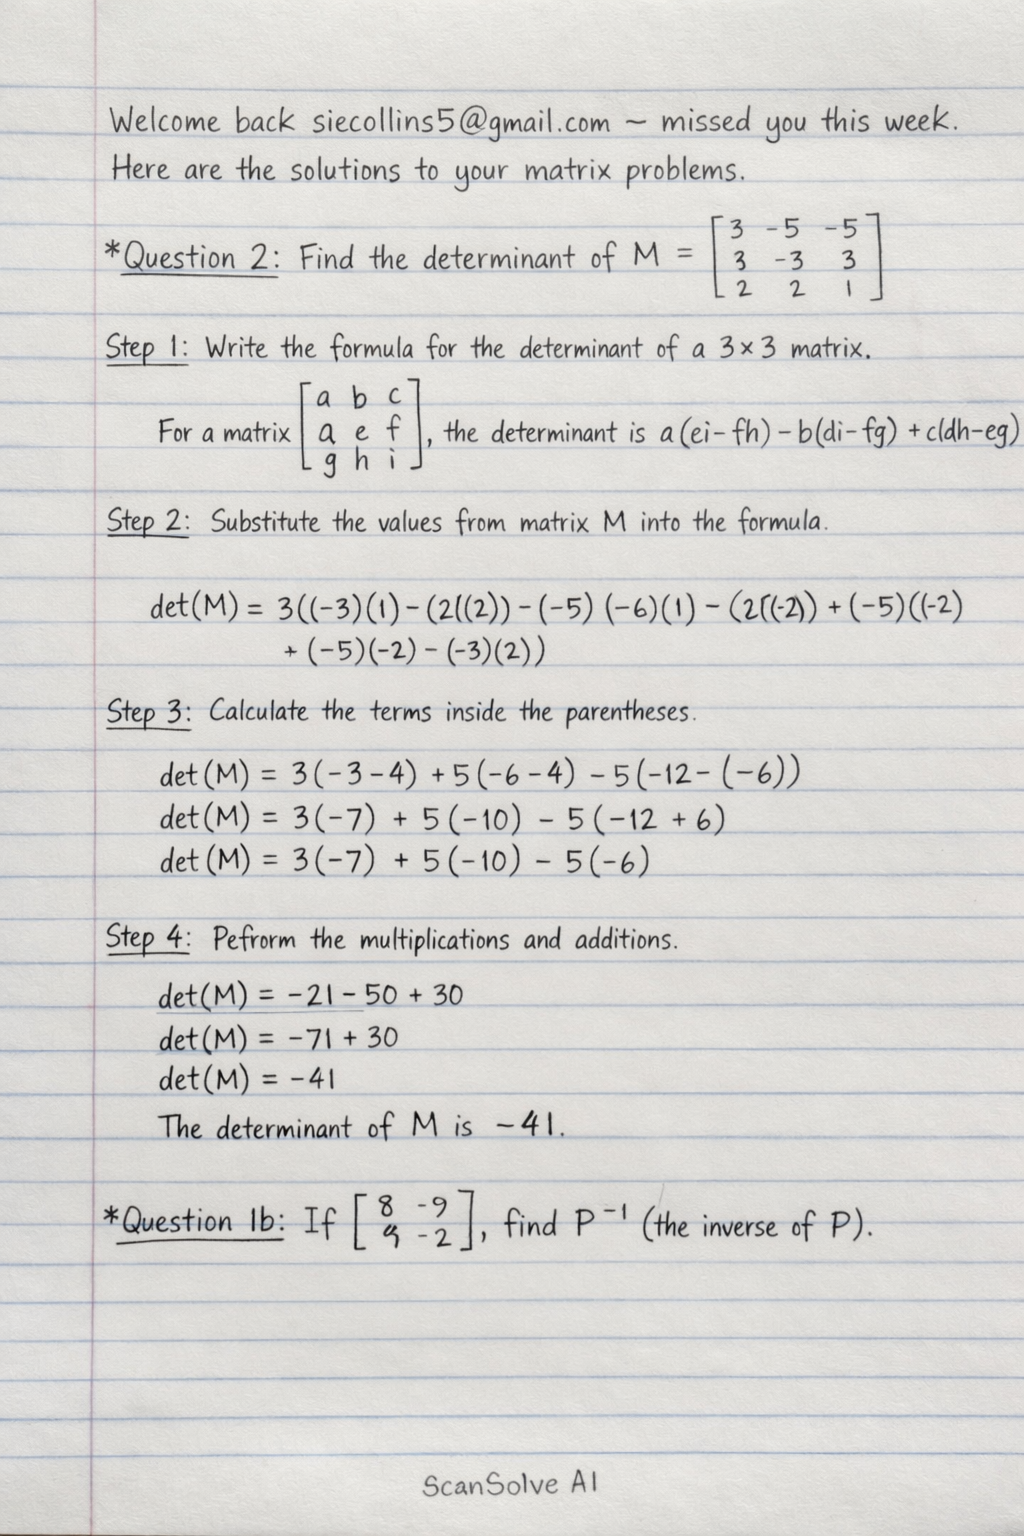 Welcome back siecollins5@gmail.com ~ missed you this week.
Here are the solutions to your matrix problems.
*Question 2: Find the determinant of M = [3 -5 -5
3 -3 3
2 2 1]
Step 1: Write the formula for the determinant of a 3×3 matrix.
For a matrix [a b c
a e f
g h i], the determinant is a(ei-fh) - b(di-fg) + c(dh-eg)
Step 2: Substitute the values from matrix M into the formula.
det(M) = 3((-3)(1) - (2((2)) - (-5) (-6)(1) - (2((-2)) + (-5)((-2)
+ (-5)(-2) - (-3)(2))
Step 3: Calculate the terms inside the parentheses.
det(M) = 3(-3-4) +5(-6-4) -5(-12-(-6))
det(M) = 3(-7) + 5(-10) - 5(-12 + 6)
det(M) = 3(-7) + 5(-10) - 5(-6)
Step 4: Pefrorm the multiplications and additions.
det(M) = -21-50 + 30
det(M) = -71 + 30
det(M) = -41
The determinant of M is -41.
*Question 1b: If [8 -9
9 -2], find P⁻¹ (the inverse of P).
ScanSolve AI